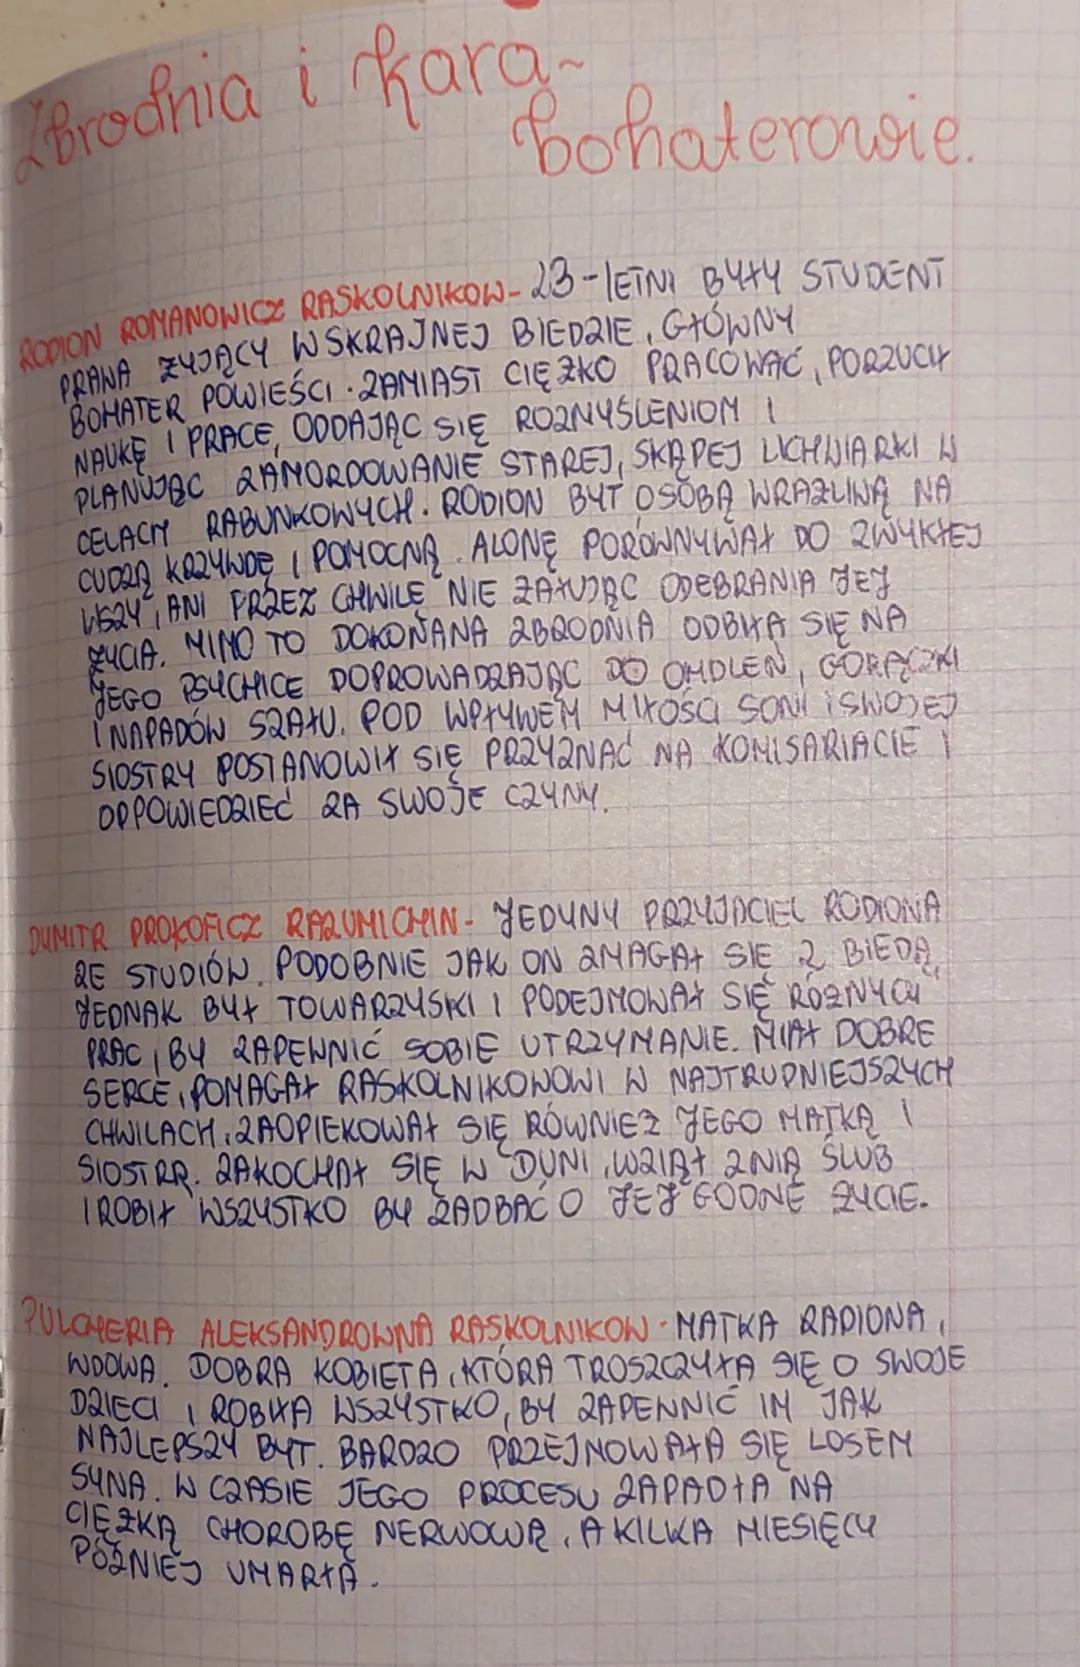 Zbrodnia i kara-
bohaterowie.
RODION ROMANOWICZ RASKOLNIKOW- 23-lETNI BYŁY STUDENT
PRAWA ŻYJĄCY W SKRAJNEJ BIEDZIE, GŁÓWNY
BOHATER POWIEŚCI. ZAMIAST CIĘŻKO PRACOWAĆ, PORZUCIŁ
NAUKĘ I PRACE, ODDAJĄC SIĘ ROZMYŚLENIOM I
PLANUJĄC ZAMORDOWANIE STAREJ, SKĄPEJ LICHWIARKI W
CELACH RABUNKOWYCH. RODION BYŁ OSOBĄ WRAŻLIWĄ NA
CUDZĄ KRZYWDĘ I POMOCNĄ. ALONĘ PORÓWNYWAŁ DO ZWYKŁEJ
WSZY, ANI PRZEZ CHWILĘ NIE ŻAŁUJĄC ODEBRANIA JEJ
ŻYCIA. MIMO TO DOKONANA ZBRODNIA ODBIŁA SIĘ NA
JEGO PSYCHICE DOPROWADZAJĄC DO OMDLEŃ, GORĄCZKI
I NAPADÓW SZAŁU. POD WPŁYWEM MIŁOŚCI SONI I SWOJEJ
SIOSTRY POSTANOWIŁ SIĘ PRZYZNAĆ NA KOMISARIACIE I
ODPOWIEDZIEĆ ZA SWOJE CZYNY.
DYMITR PROKOFICZ RAZUMICHIN- JEDYNY PRZYJACIEL RODIONA
ZE STUDIÓW. PODOBNIE JAK ON ZMAGAŁ SIĘ Z BIEDĄ,
JEDNAK BYŁ TOWARZYSKI I PODEJMOWAŁ SIĘ RÓŻNYCH
PRAC, BY ZAPEWNIĆ SOBIE UTRZYMANIE. MIAŁ DOBRE
SERCE, POMAGAŁ RASKOLNIKOWOWI W NAJTRUDNIEJSZYCH
CHWILACH, ZAOPIEKOWAŁ SIĘ RÓWNIEŻ JEGO MATKĄ I
SIOSTRĄ. ZAKOCHAŁ SIĘ W DUNI, WZIĄŁ Z NIĄ ŚLUB
I ROBIŁ WSZYSTKO BY ZADBAĆ O JEJ GODNE ŻYCIE.
PULCHERIA ALEKSANDROWNA RASKOLNIKOW- MATKA RADIONA,
WDOWA. DOBRA KOBIETA, KTÓRA TROSZCZYŁA SIĘ O SWOJE
DZIECI I ROBIŁA WSZYSTKO, BY ZAPEWNIĆ IM JAK
NAJLEPSZY BYT. BARDZO PRZEJMOWAŁA SIĘ LOSEM
SYNA. W CZASIE JEGO PROCESU ZAPADŁA NA
CIĘŻKĄ CHOROBĘ NERWOWĄ, A KILKA MIESIĘCY
PÓŹNIEJ UMARŁA.